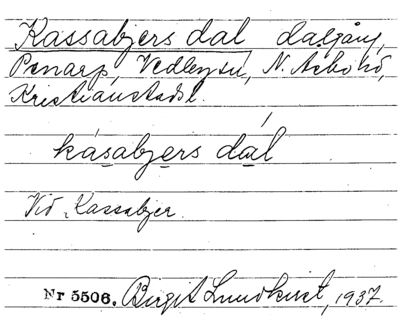 Kassabjers dal dalgång,
Penarp, Vedbysn, N. Åsbo hd,
Kristianstadsl.
kásabjers dál
Vid Kassabjer.
Nr 5506. Birgit Lundkvist, 1937.